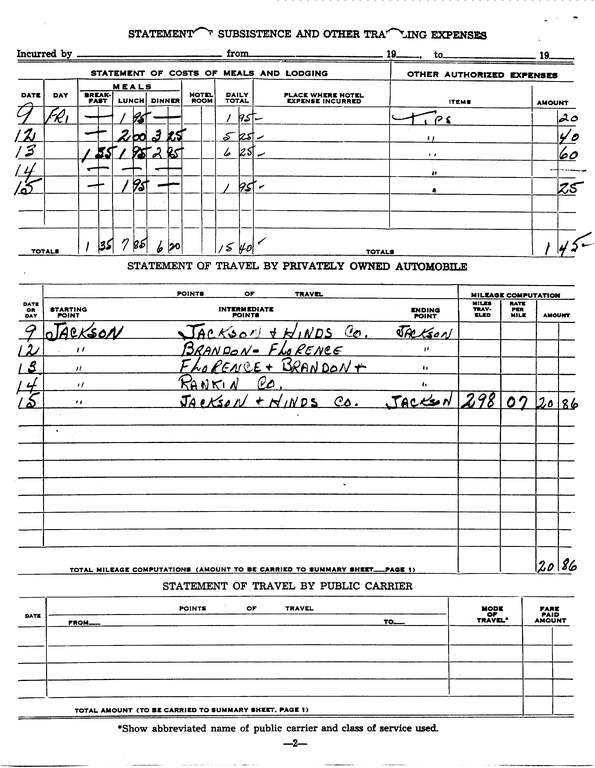 STATEMENT SUBSISTENCE AND OTHER TRA LING EXPENSES
Incurred by from 19 , to 19
STATEMENT OF COSTS OF MEALS AND LODGING OTHER AUTHORIZED EXPENSES
DATE DAY MEALS BREAK-FAST LUNCH DINNER HOTEL ROOM DAILY TOTAL PLACE WHERE HOTEL EXPENSE INCURRED ITEMS AMOUNT
9 FRI — 1 95 — 1 95 Tips 20
12 — 2 00 3 25 5 25 " 40
13 1 35 1 95 2 95 6 25 " 60
14 — — — "
15 — 1 95 — 1 95 " 25
TOTALS 1 35 7 85 6 20 15 40 TOTALS 1 45
STATEMENT OF TRAVEL BY PRIVATELY OWNED AUTOMOBILE
POINTS OF TRAVEL MILEAGE COMPUTATION
DATE OR DAY STARTING POINT INTERMEDIATE POINTS ENDING POINT MILES TRAV-ELED RATE PER MILE AMOUNT
9 JACKSON JACKSON + HINDS CO. JACKSON
12 " BRANDON - FLORENCE "
13 " FLORENCE + BRANDON + "
14 " RANKIN CO. "
15 " JACKSON + HINDS CO. JACKSON 298 07 20 86
TOTAL MILEAGE COMPUTATIONS (AMOUNT TO BE CARRIED TO SUMMARY SHEET—PAGE 1) 20 86
STATEMENT OF TRAVEL BY PUBLIC CARRIER
DATE POINTS OF TRAVEL MODE OF TRAVEL* FARE PAID AMOUNT
FROM— TO—
TOTAL AMOUNT (TO BE CARRIED TO SUMMARY SHEET, PAGE 1)
*Show abbreviated name of public carrier and class of service used.
—2—